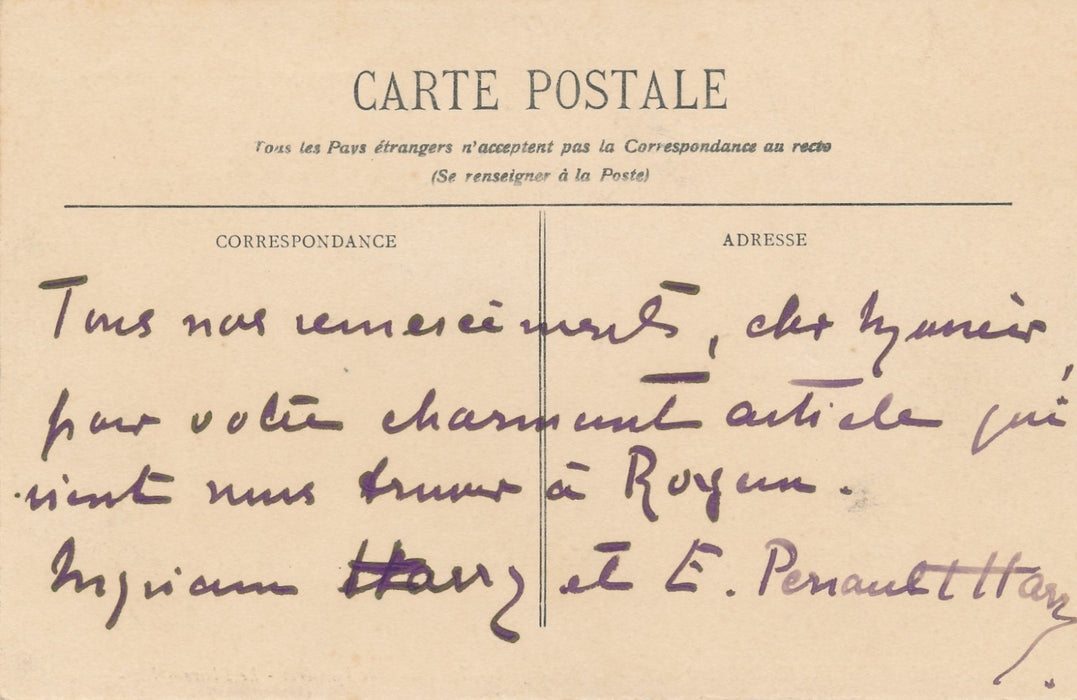 CARTE POSTALE
Tous les Pays étrangers n'acceptent pas la Correspondance au recto
(Se renseigner à la Poste)
CORRESPONDANCE
ADRESSE
Tous nos remerciements, cher
pour votre charmant article qui
vient nous trouver à Royan.
Myriam Harry et E. Perrault Harry